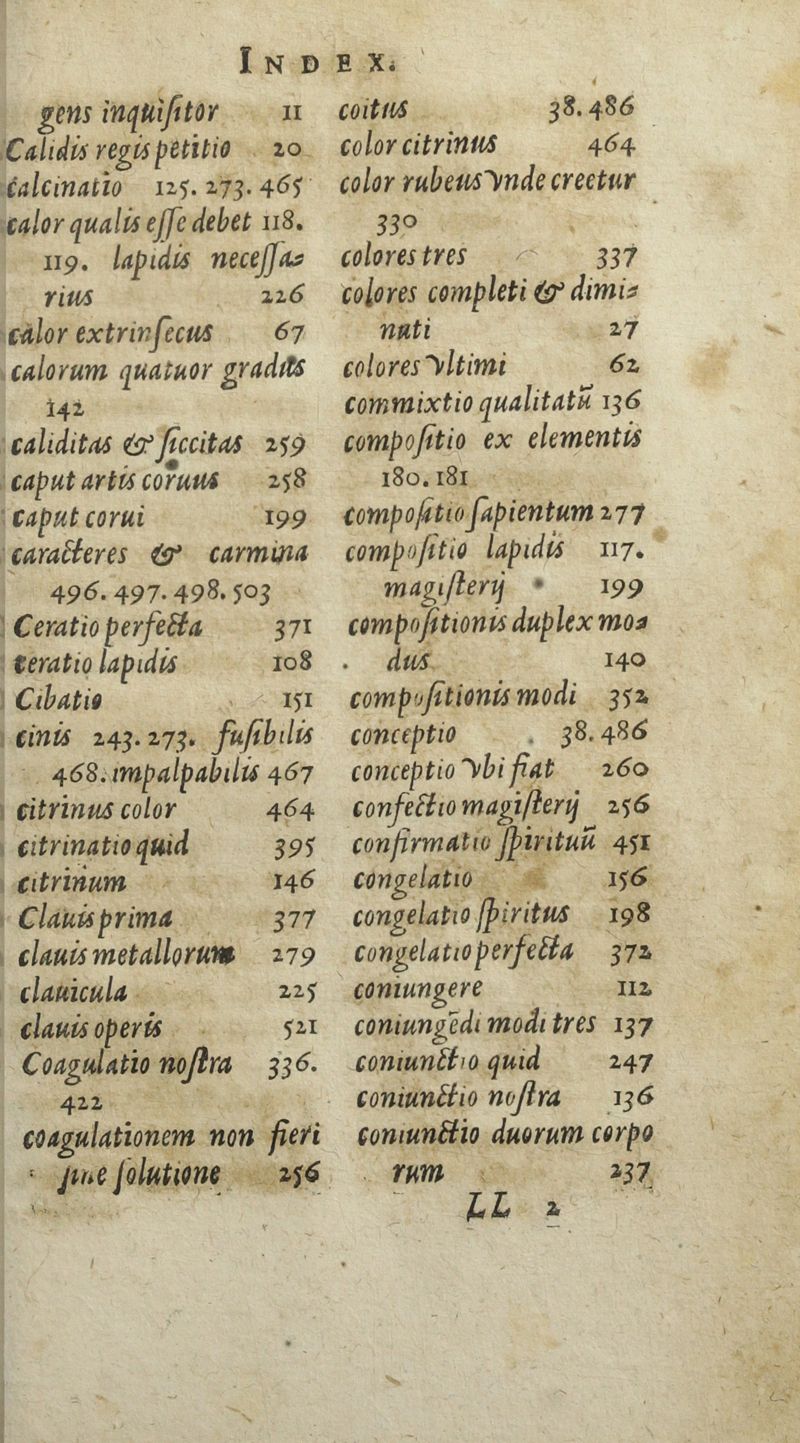 INDEX.
gens inquiſitor 11
Calidis regis petitio 20
calcinatio 125. 273. 465
calor qualis eſſe debet 118.
119. lapidis neceſſa-
rius 226
calor extrinſecus 67
calorum quatuor gradus
142
caliditas & ſiccitas 259
caput artis coruus 258
caput corui 199
caracteres & carmina
496. 497. 498. 503
Ceratio perfecta 371
ceratio lapidis 108
Cibatio 151
cinis 243. 273. fuſibilis
468. impalpabilis 467
citrinus color 464
citrinatio quid 395
citrinum 146
Clauis prima 377
clauis metallorum 279
clauicula 225
clauis operis 521
Coagulatio noſtra 336.
422
coagulationem non fieri
ſine ſolutione 256
coitus 38. 486
color citrinus 464
color rubeus vnde creetur
330
colores tres 337
colores completi & dimi-
nuti 27
colores vltimi 62
commixtio qualitatū 136
compoſitio ex elementis
180. 181
compoſitio ſapientum 277
compoſitio lapidis 117.
magiſterij 199
compoſitionis duplex mo-
dus 140
compoſitionis modi 352
conceptio 38. 486
conceptio vbi fiat 260
confectio magiſterij 256
confirmatio ſpirituū 451
congelatio 156
congelatio ſpiritus 198
congelatio perfecta 372
coniungere 112
coniungēdi modi tres 137
coniunctio quid 247
coniunctio noſtra 136
coniunctio duorum corpo
rum 237
LL 2